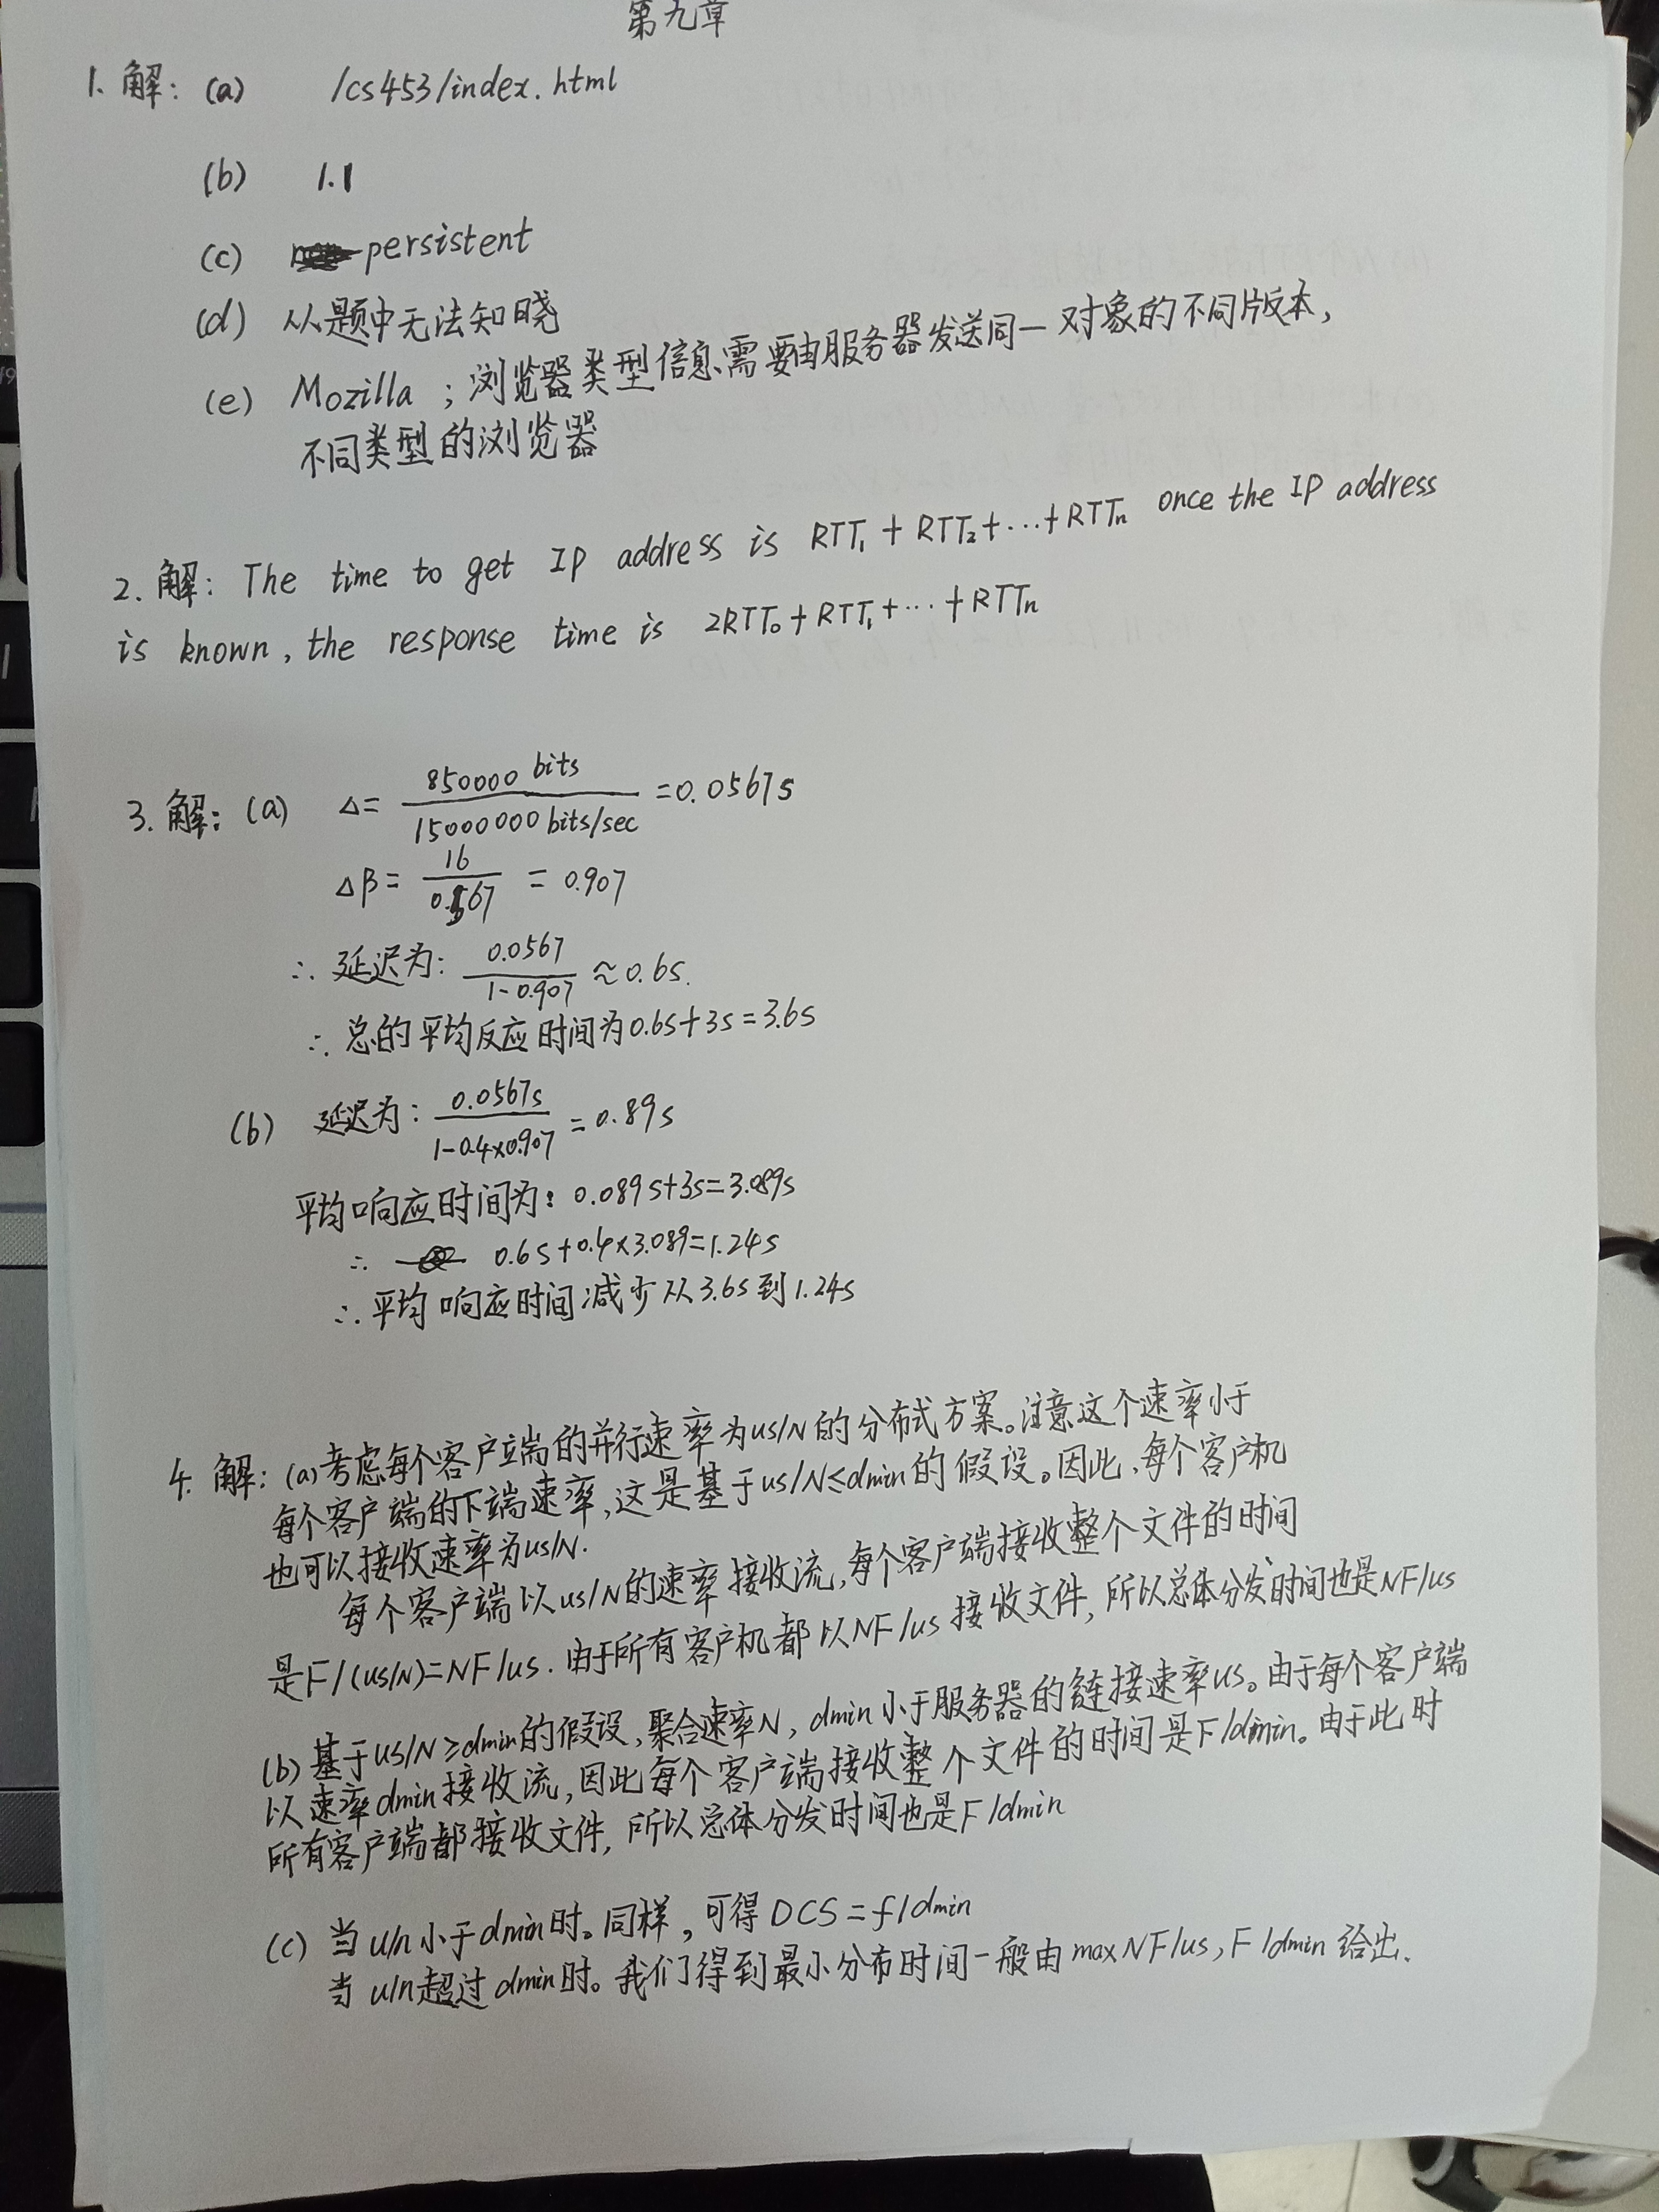 第九章
1. 解: (a) /cs453/index.html
(b) 1.1
(c) persistent
(d) 从题中无法知晓
(e) Mozilla ; 浏览器类型信息需要由服务器发送同一对象的不同版本,
不同类型的浏览器
2. 解: The time to get IP address is RTT₁ + RTT₂+…+RTTₙ once the IP address
is known, the response time is 2RTT₀+RTT₁+…+RTTₙ
3. 解: (a) Δ= 850000 bits / 15000000 bits/sec =0.0567s
Δβ= 16 / 0.567 = 0.907
∴ 延迟为: 0.0567 / 1-0.907 ≈0.6s.
∴ 总的平均反应时间为0.6s+3s=3.6s
(b) 延迟为: 0.0567s / 1-0.4×0.907 =0.89s
平均响应时间为: 0.089s+3s=3.089s
∴ 0.6s+0.4×3.089=1.24s
∴ 平均响应时间减少从3.6s到1.24s
4. 解: (a)考虑每个客户端的并行速率为us/N的分布式方案。注意这个速率小于
每个客户端的下端速率,这是基于us/N≤dmin的假设。因此,每个客户机
也可以接收速率为us/N.
每个客户端以us/N的速率接收流,每个客户端接收整个文件的时间
是F/(us/N)=NF/us.由于所有客户机都以NF/us接收文件,所以总体分发时间也是NF/us
(b)基于us/N≥dmin的假设,聚合速率N,dmin小于服务器的链接速率us。由于每个客户端
以速率dmin接收流,因此每个客户端接收整个文件的时间是F/dmin。由于此时
所有客户端都接收文件,所以总体分发时间也是F/dmin
(c) 当u/n小于dmin时。同样,可得DCS=f/dmin
当u/n超过dmin时。我们得到最小分布时间一般由maxNF/us,F/dmin给出.